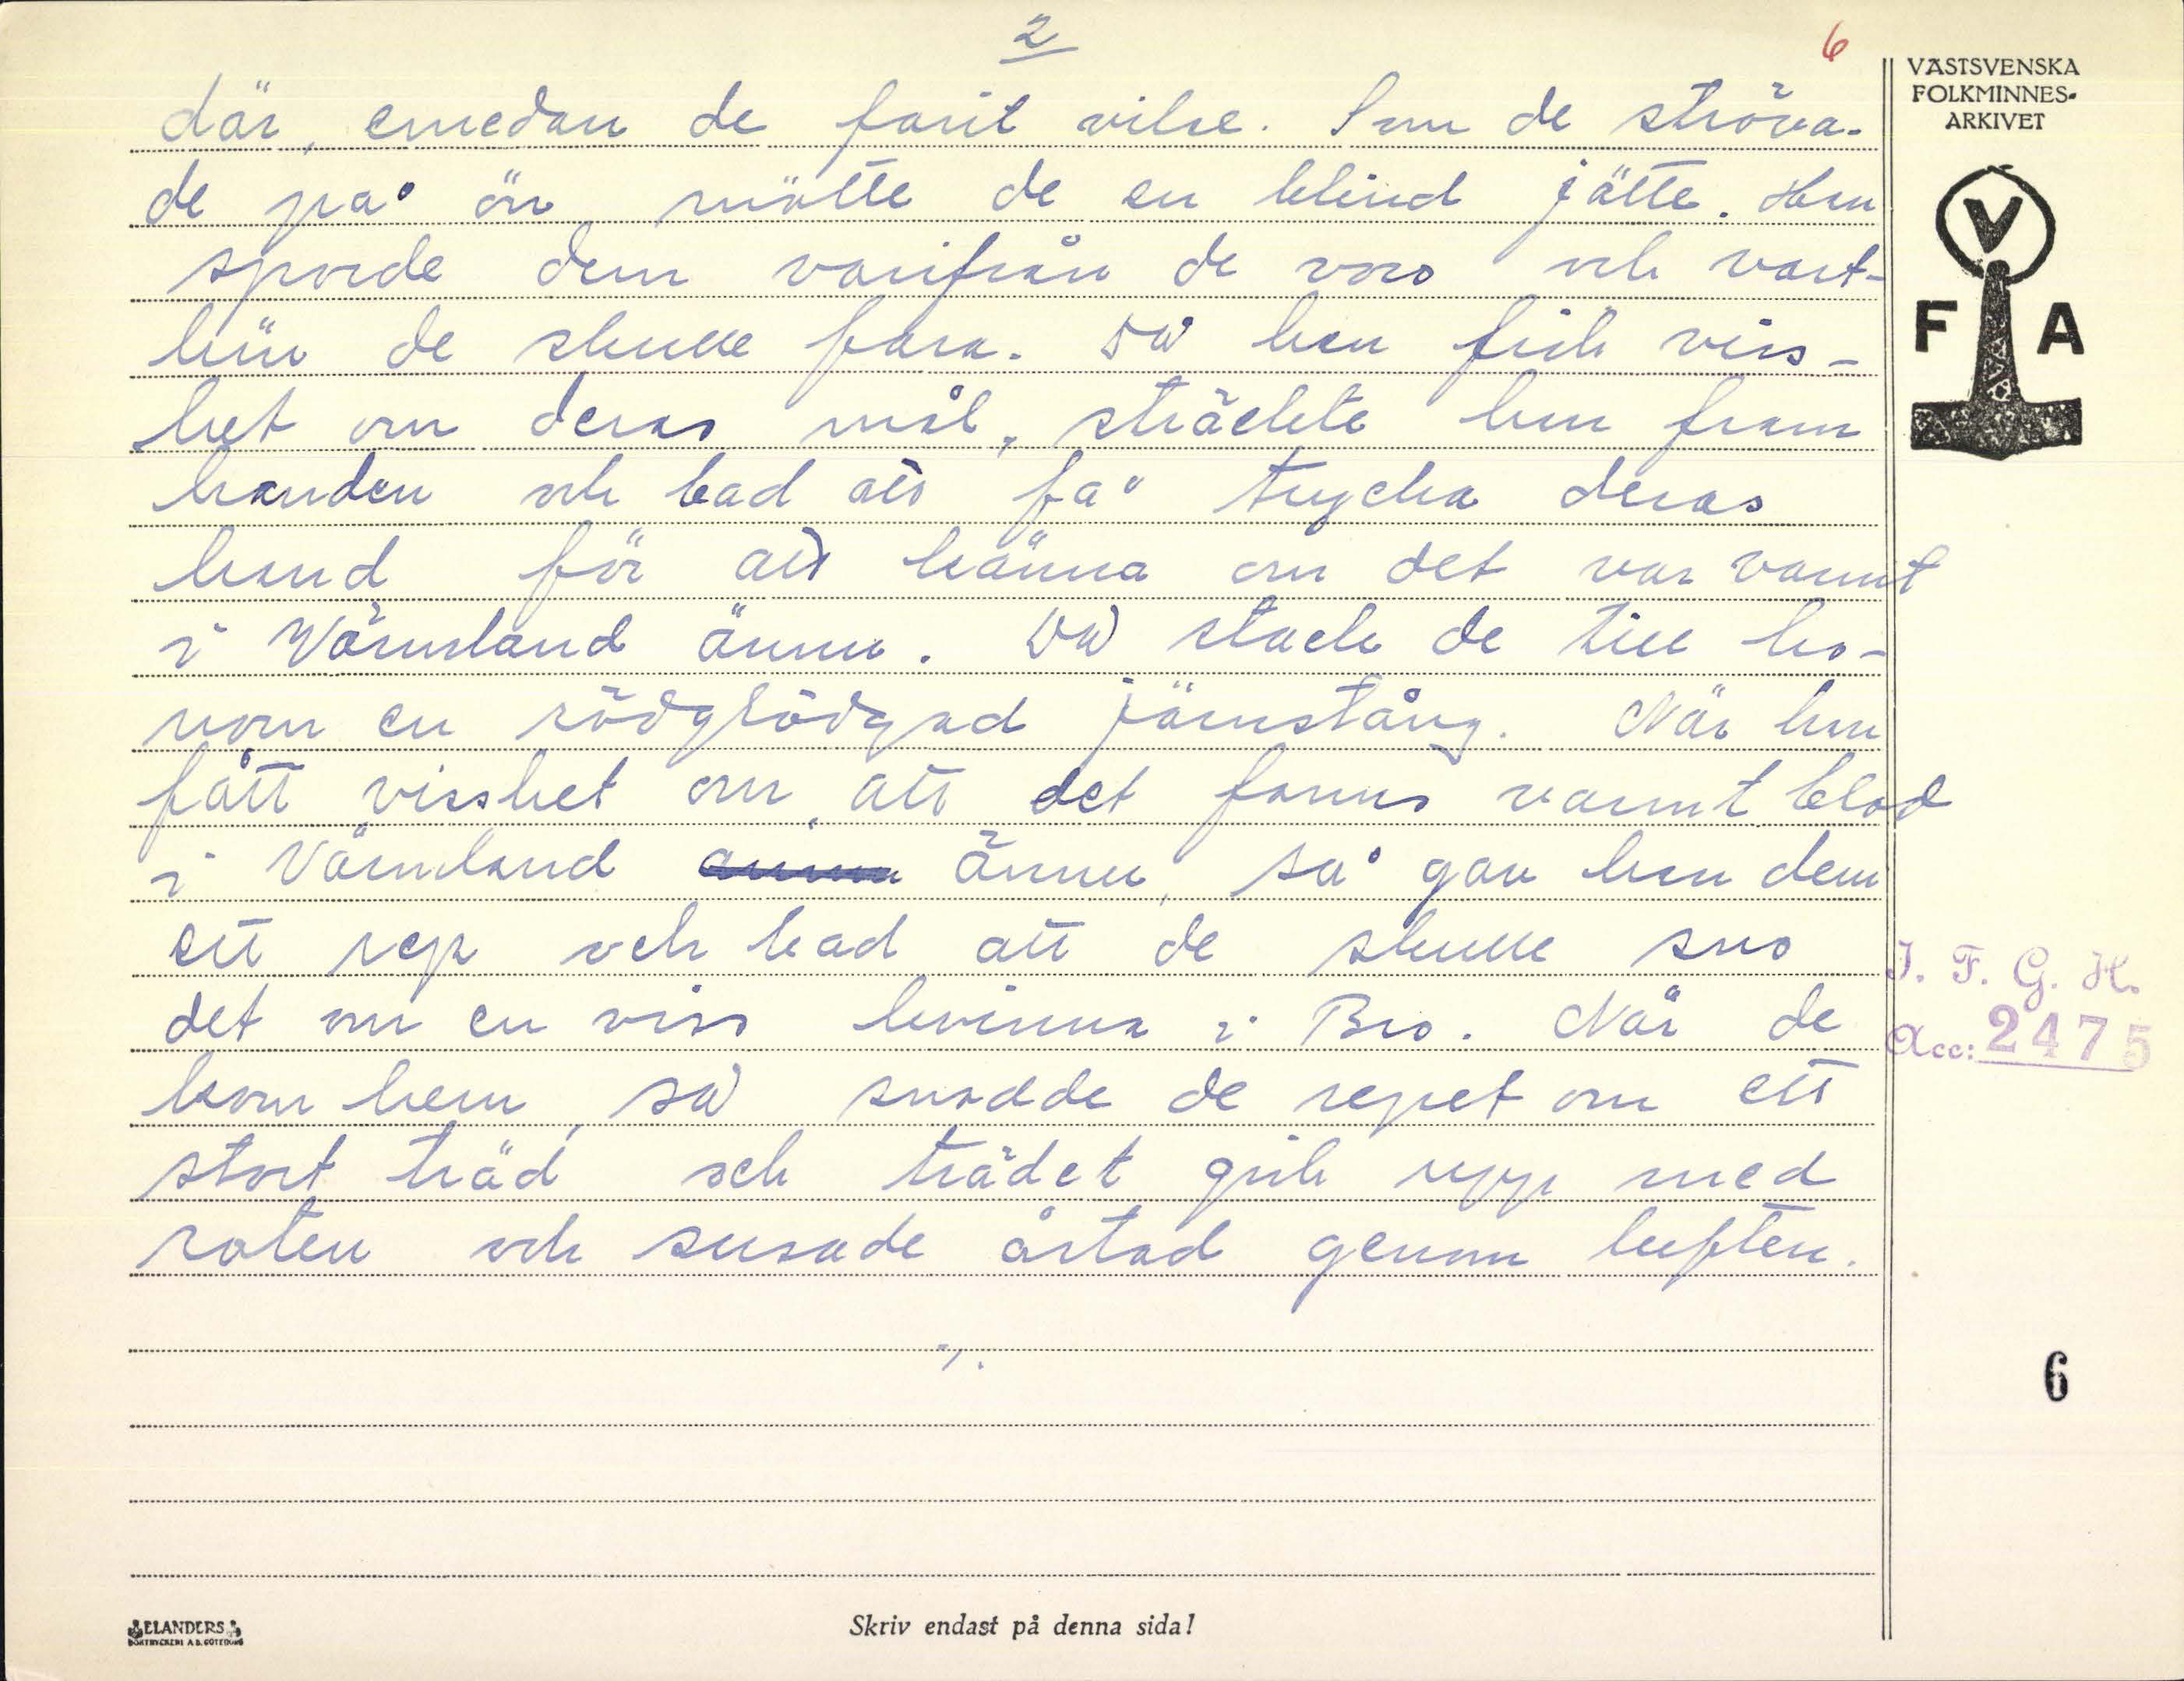 2
6
där, emedan de farit vilse. Som de ströva-
de på ön mötte de en blind jätte. Han
sporde dem varifrån de voro och vart-
hän de skulle fara. Då han fick viss-
het om deras mål, sträckte han fram
handen och bad att få trycka deras
hand för att känna om det var varmt
i Värmland ännu. Då stack de till ho-
nom en rödglödgad järnstång. När han
fått visshet om att det fanns varmt blod
i Värmland ännu, så gav han dem
ett rep och bad att de skulle sno
det om en viss kvinna i Bro. När de
kom hem, så snodde de repet om ett
stort träd och trädet gick upp med
roten och susade åstad genom luften.
"/.
VÄSTSVENSKA
FOLKMINNES-
ARKIVET
V
F A
I. F. G. H.
Acc: 2475
6
ELANDERS
BOKTRYCKERI A.B. GÖTEBORG
Skriv endast på denna sida!